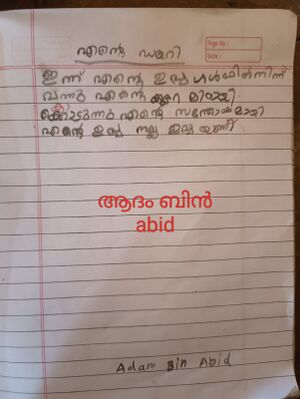 എന്റെ ഡയറി
Page No :
Date :
ഇന്ന് എന്റെ ഉപ്പ ഗൾഫിൽനിന്ന്
വന്നു എന്റെ കുറെ മിഠായി
കൊടുന്നു എന്റെ സന്തോഷമായി
എന്റെ ഉപ്പ നല്ല ഉപ്പയാണ്
ആദം ബിൻ
abid
Adam Bin Abid